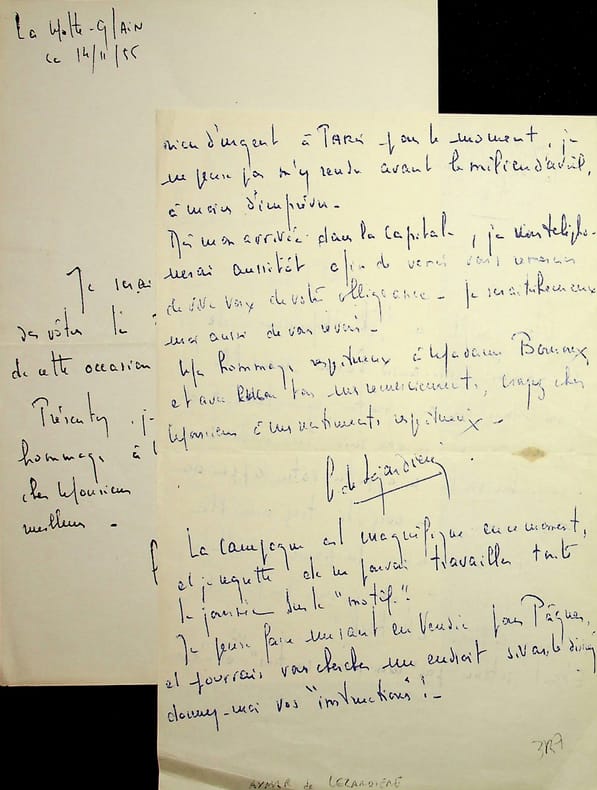 La Motte-Glain
ce 14/11/55
Je serai
des vôtres le
de cette occasion
Présentez, je
hommage à
cher Monsieur
meilleur -
rien d'urgent à PARIS pour le moment, je
ne pense pas m'y rendre avant le milieu d'avril,
à moins d'imprévu -
Dès mon arrivée dans la capitale, je vous télépho-
nerai aussitôt afin de venir vous remercier
de vive voix de votre obligeance - Je serai très heureux
moi aussi de vous revoir -
Mes hommages respectueux à Madame
et avec tous mes remerciements, croyez cher
Monsieur à mes sentiments respectueux -
La campagne est magnifique en ce moment,
et je regrette de ne pouvoir travailler toute
la journée sur le "motif".
Je pense faire un saut en Vendée pour Pâques,
et pourrais vous chercher un endroit si vous le désirez
donnez-moi vos "instructions"! -
3R7
AYMAR de LEZARDIÈRE